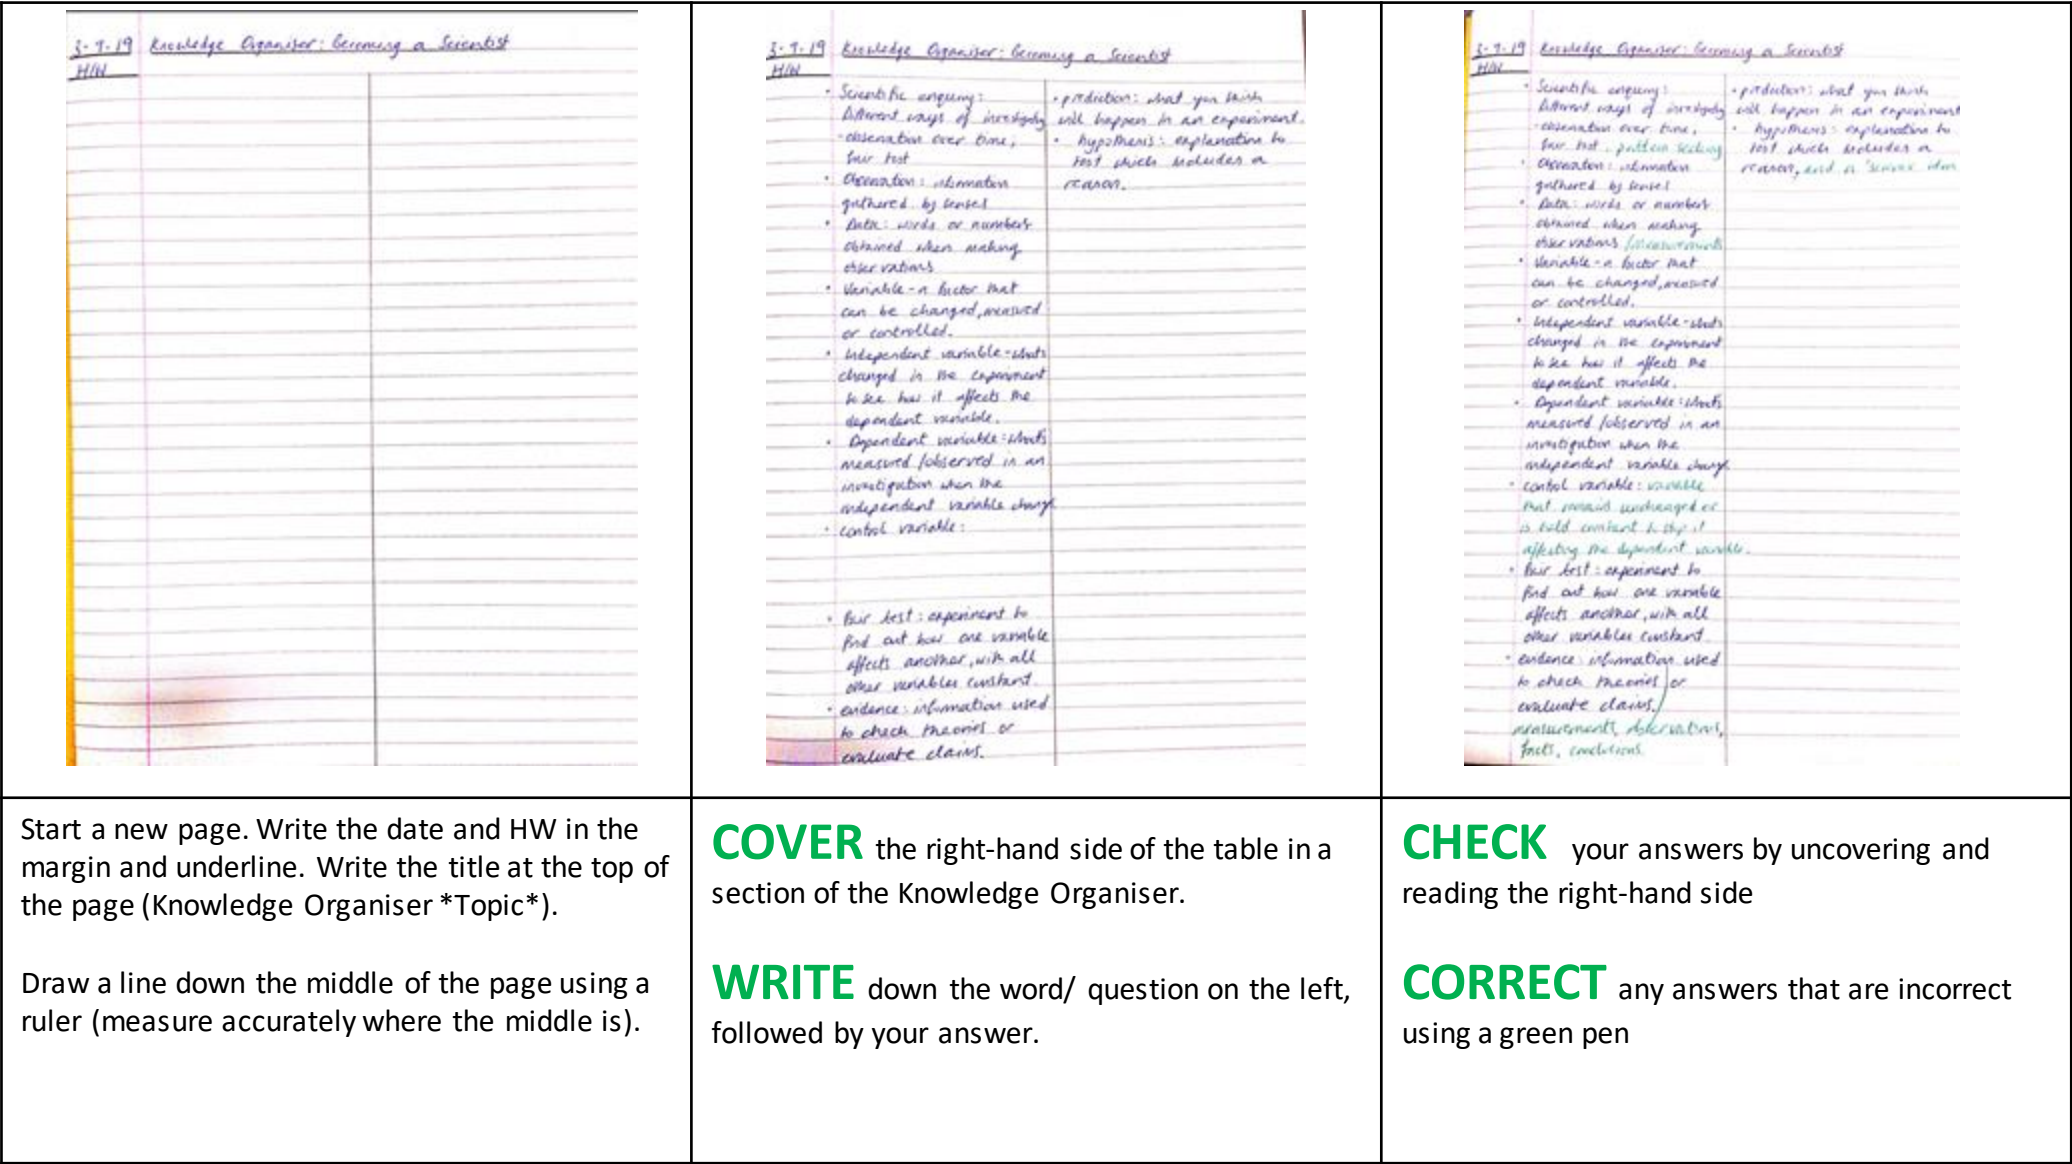 3-9-19 Knowledge Organiser: Becoming a Scientist
H/W
3-9-19 Knowledge Organiser: Becoming a Scientist
H/W
• Scientific enquiry:
Different ways of investigating
-observation over time,
fair test
• Observation: information
gathered by senses
• Data: words or numbers
obtained when making
observations
• Variable - a factor that
can be changed, measured
or controlled.
• Independent variable - whats
changed in the experiment
to see how it affects the
dependent variable.
• Dependent variable: whats
measured /observed in an
investigation when the
independent variable change
• control variable:
• Fair test: experiment to
find out how one variable
affects another, with all
other variables constant.
• evidence: information used
to check theories or
evaluate claims.
• prediction: what you think
will happen in an experiment.
• hypothesis: explanation to
test which includes a
reason.
3-9-19 Knowledge Organiser: Becoming a Scientist
H/W
• Scientific enquiry:
Different ways of investigating
-observation over time,
fair test, pattern seeking
• Observation: information
gathered by senses
• Data: words or numbers
obtained when making
observations /measurements
• Variable - a factor that
can be changed, measured
or controlled.
• Independent variable - whats
changed in the experiment
to see how it affects the
dependent variable.
• Dependent variable: whats
measured /observed in an
investigation when the
independent variable change
• control variable: variable
that remains unchanged or
is held constant to stop it
affecting the dependent variable.
• Fair test: experiment to
find out how one variable
affects another, with all
other variables constant.
• evidence: information used
to check theories or
evaluate claims.
measurements, observations,
facts, conclusions.
• prediction: what you think
will happen in an experiment
• hypothesis: explanation to
test which includes a
reason, and a science idea
Start a new page. Write the date and HW in the
margin and underline. Write the title at the top of
the page (Knowledge Organiser *Topic*).
Draw a line down the middle of the page using a
ruler (measure accurately where the middle is).
COVER the right-hand side of the table in a
section of the Knowledge Organiser.
WRITE down the word/ question on the left,
followed by your answer.
CHECK your answers by uncovering and
reading the right-hand side
CORRECT any answers that are incorrect
using a green pen